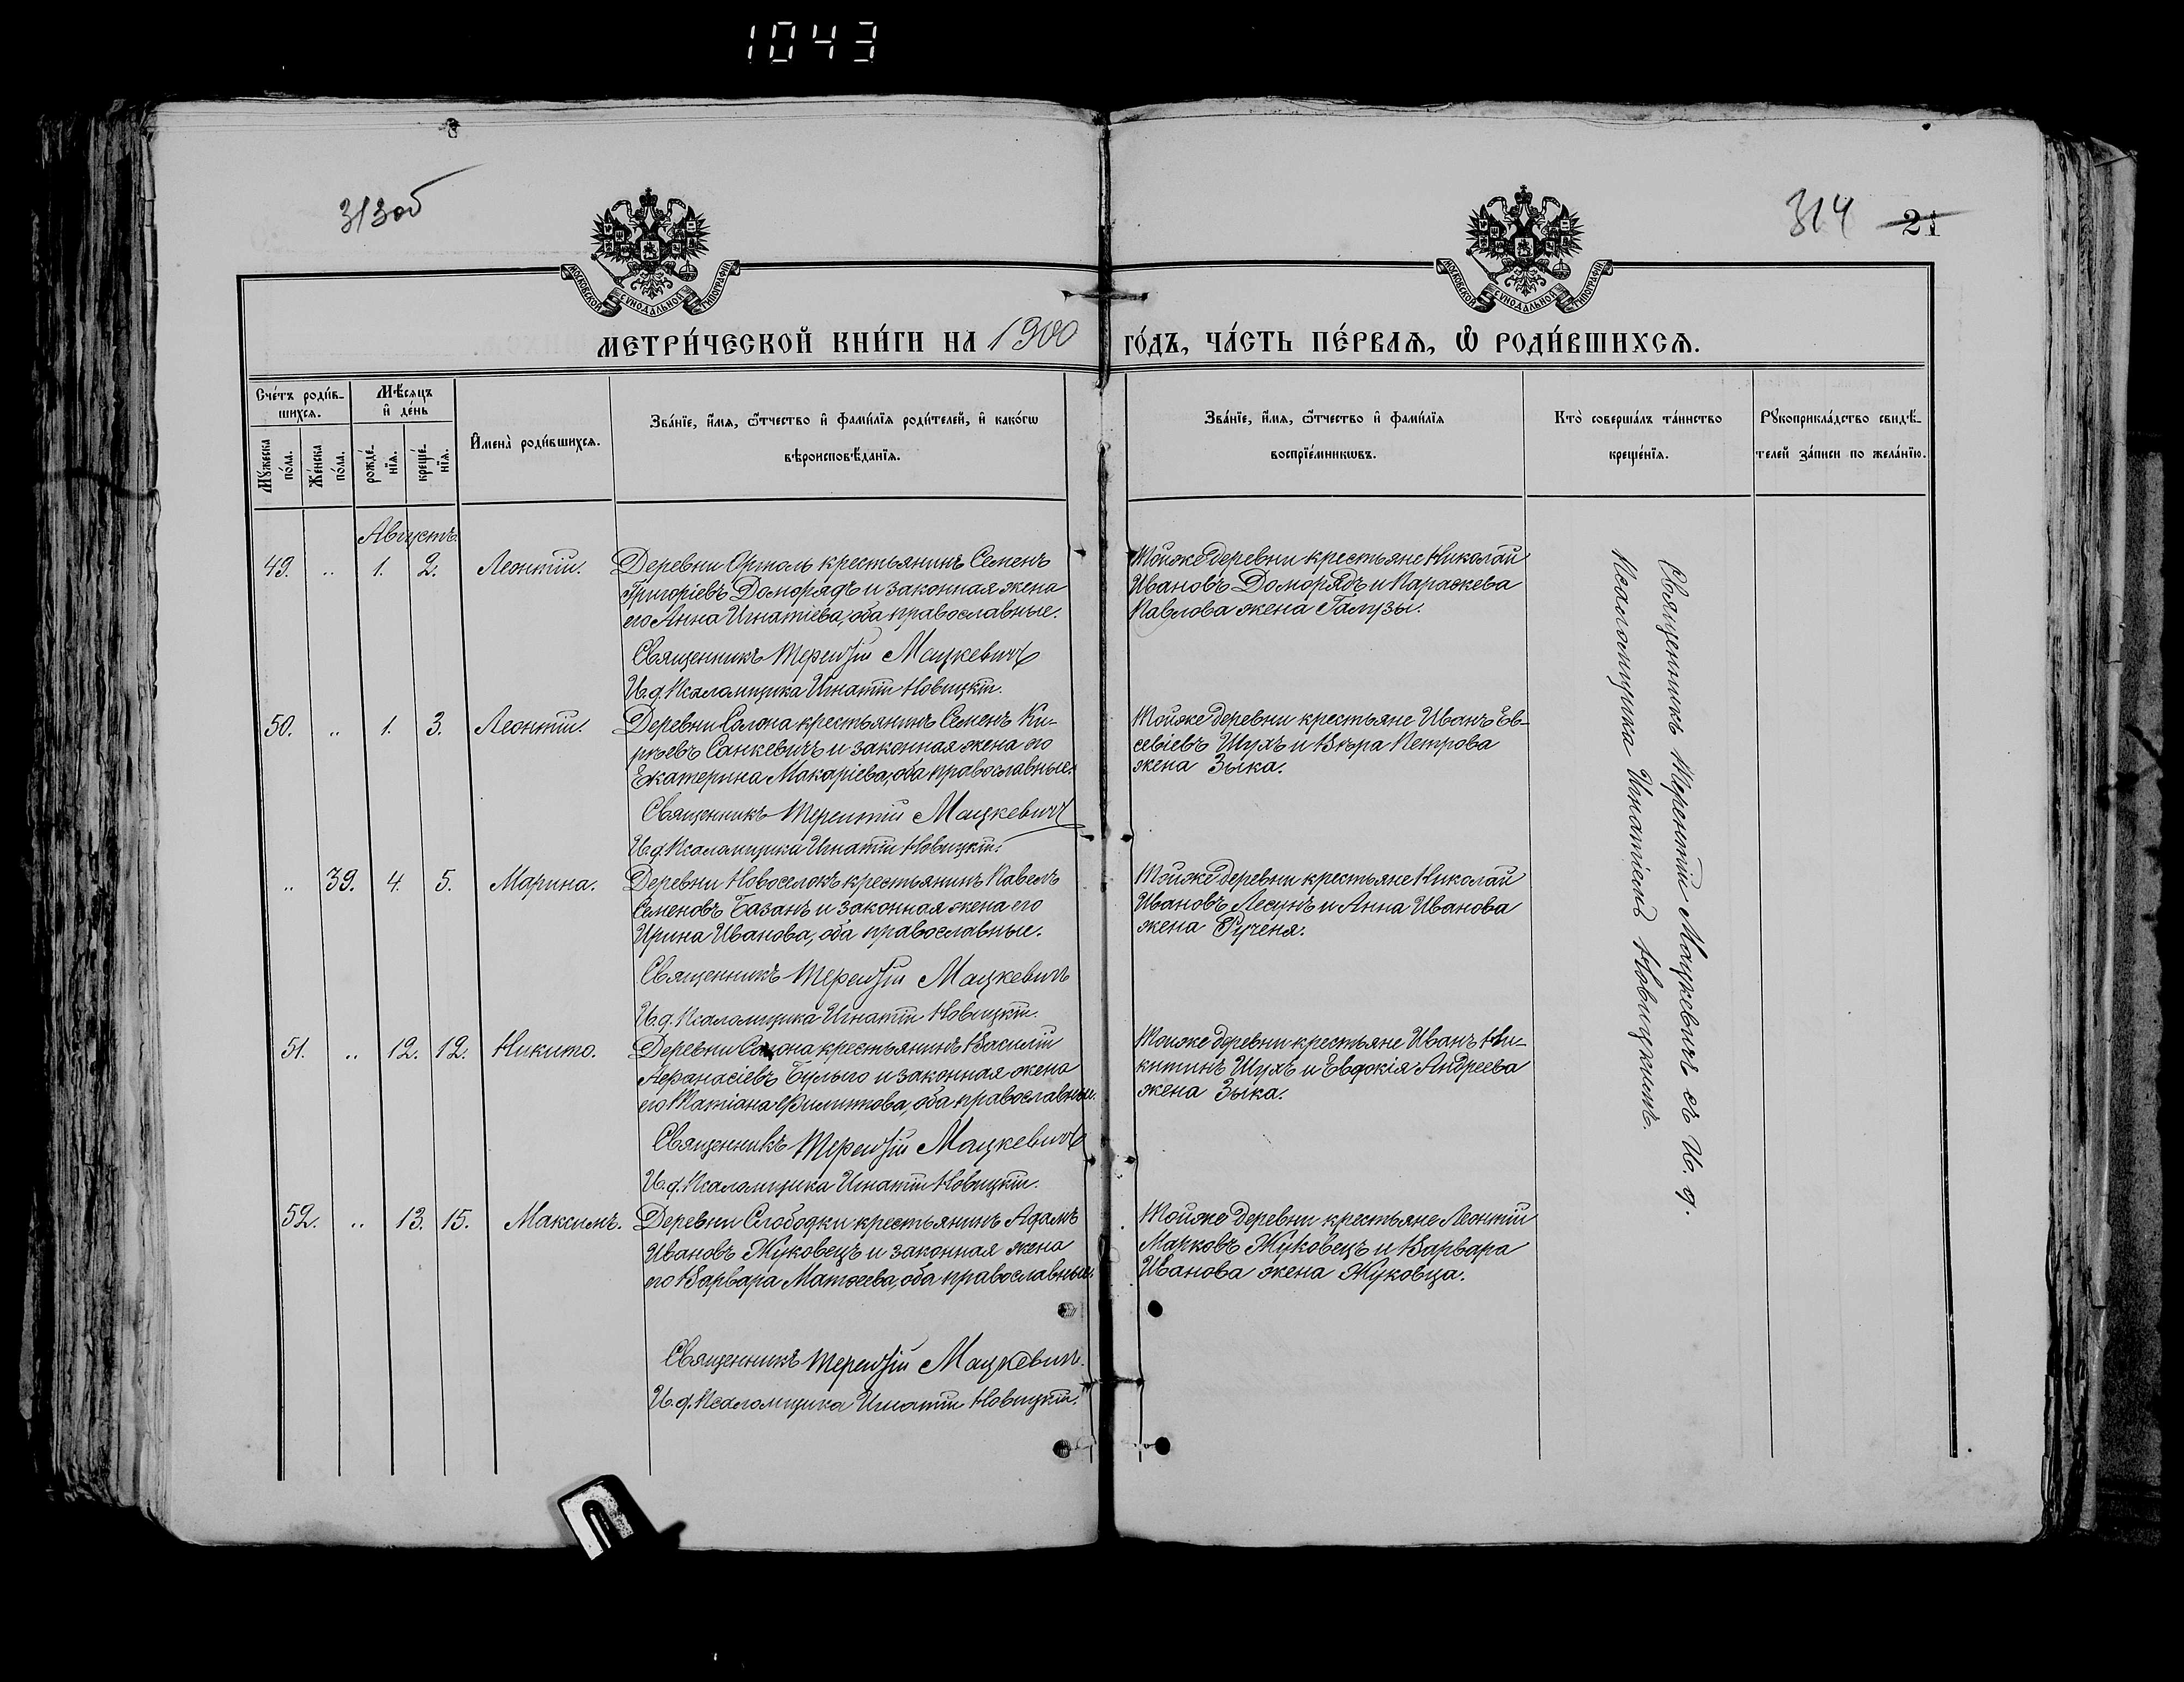 1043
313об
314 21
МОСКОВСКОЙ СѴНОДАЛЬНОЙ ТИПОГРАФІИ
МОСКОВСКОЙ СѴНОДАЛЬНОЙ ТИПОГРАФІИ
МЕТРИ́ЧЕСКОЙ КНИ́ГИ НА 1900 ГО́ДЪ, ЧА́СТЬ ПЕ́РВАѦ, Ѡ҆ РОДИ́ВШИХСѦ.
Сче́тъ роди́в-
шихсѧ.
Мѣ́сѧцъ
и҆ де́нь
Мꙋ́жеска
по́ла.
Же́нска
по́ла.
рожде́-
нїѧ.
креще́-
нїѧ.
И҆мена̀ роди́вшихсѧ.
Зва́нїе, и҆́мѧ, ѻ҆́тчество и҆ фами́лїѧ роди́телей, и҆ како́гѡ
вѣроисповѣ́данїѧ.
Зва́нїе, и҆́мѧ, ѻ҆́тчество и҆ фами́лїѧ
воспрїе́мникѡвъ.
Кто̀ соверша́лъ та́инство
креще́нїѧ.
Рꙋкоприкла́дство свидѣ́-
телей за́писи по жела́нїю.
Августъ.
49. „ 1. 2. Леонтій. Деревни Ортоль крестьянинъ Семенъ
Григоріевъ Доморадъ и законная жена
его Анна Игнатіева, оба православные.
Священникъ Терентій Мацкевичъ
И.д. Псаломщика Игнатій Новицкій.
Тойже деревни крестьяне Николай
Ивановъ Доморадъ и Параскева
Павлова жена Галузы.
50. „ 1. 3. Леонтій. Деревни Солона крестьянинъ Семенъ Ки-
рѣевъ Санкевичъ и законная жена его
Екатерина Макаріева, оба православные.
Священникъ Терентій Мацкевичъ
И.д. Псаломщика Игнатій Новицкій.
Тойже деревни крестьяне Иванъ Ев-
севіевъ Шухъ и Вѣра Петрова
жена Зыка.
„ 39. 4. 5. Марина. Деревни Новоселокъ крестьянинъ Павелъ
Семеновъ Базанъ и законная жена его
Ирина Иванова, оба православные.
Священникъ Терентій Мацкевичъ
И.д. Псаломщика Игнатій Новицкій.
Тойже деревни крестьяне Николай
Ивановъ Лесунъ и Анна Иванова
жена Рученя.
51. „ 12. 12. Никита. Деревни Солона крестьянинъ Василій
Аѳанасіевъ Булыго и законная жена
его Татіана Филиппова, оба православные.
Священникъ Терентій Мацкевичъ
И.д. Псаломщика Игнатій Новицкій.
Тойже деревни крестьяне Иванъ Ни-
китинъ Шухъ и Евдокія Андреева
жена Зыка.
52. „ 13. 15. Максимъ. Деревни Слободки крестьянинъ Адамъ
Ивановъ Жуковецъ и законная жена
его Варвара Матѳеева, оба православные.
Священникъ Терентій Мацкевичъ.
И.д. Псаломщика Игнатій Новицкій.
Тойже деревни крестьяне Леонтій
Марковъ Жуковецъ и Варвара
Иванова жена Жуковца.
Священникъ Терентій Мацкевичъ съ И. д.
Псаломщика Игнатіемъ Новицкимъ.